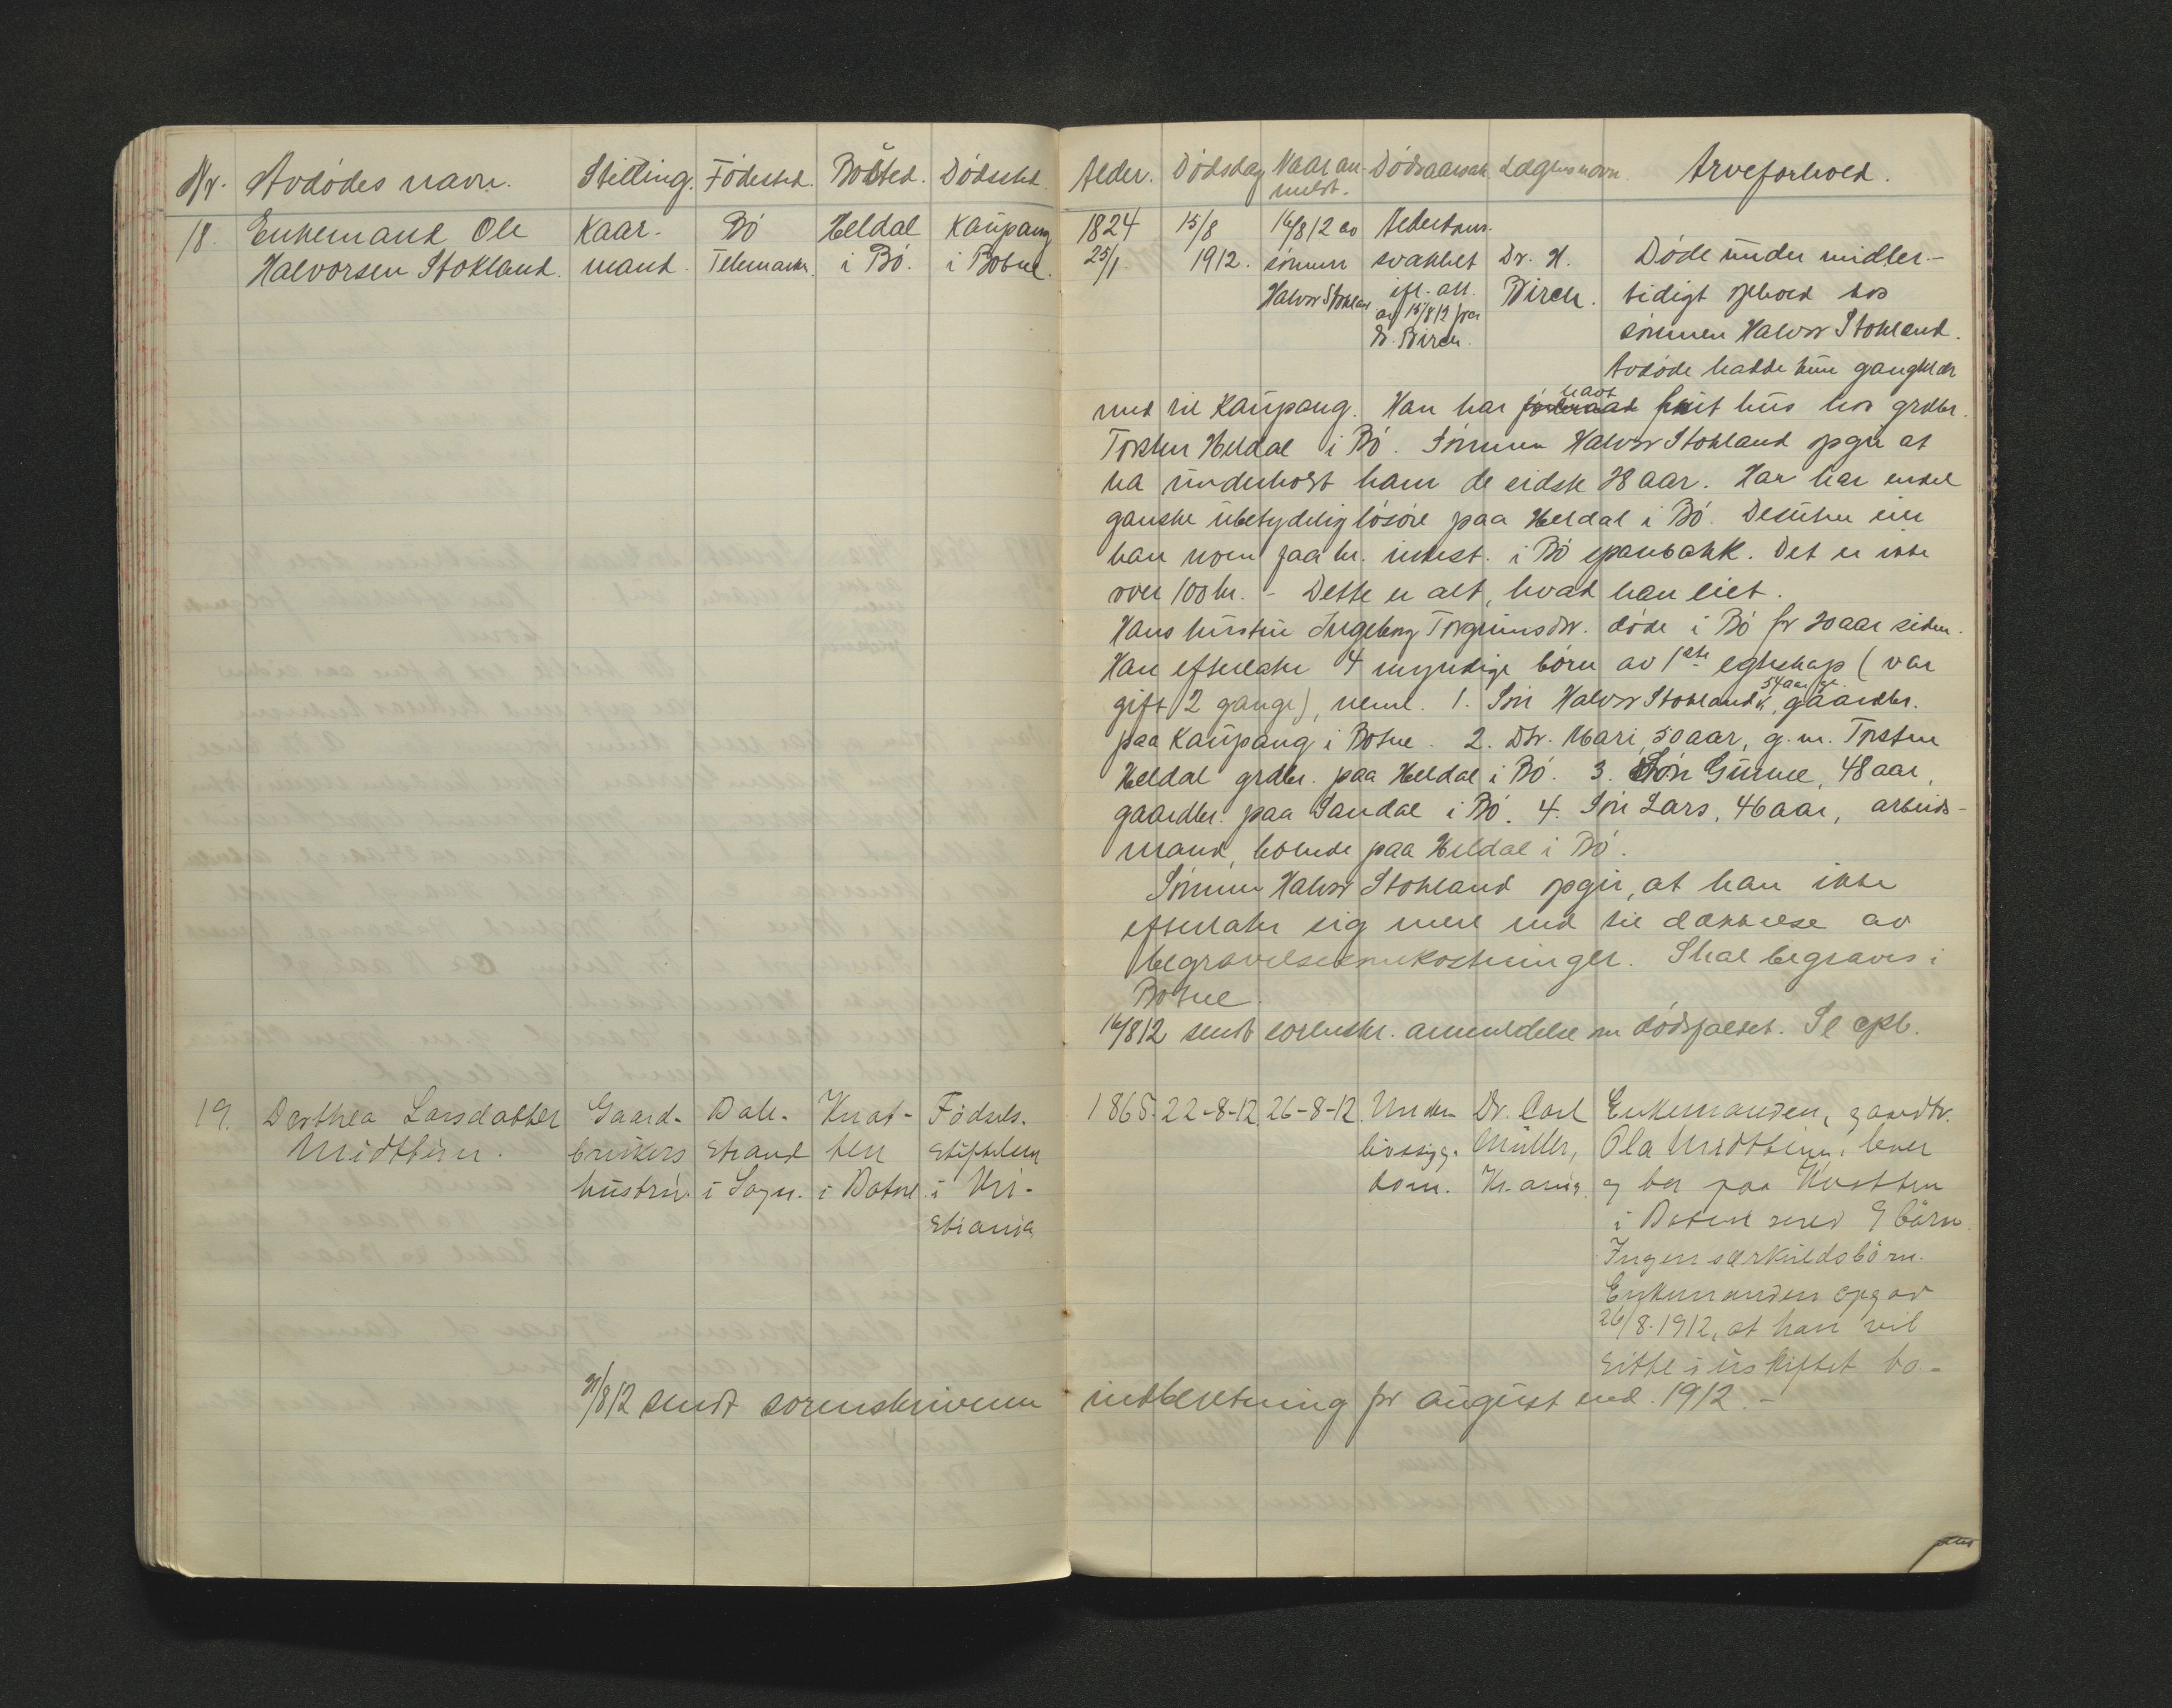 Nr. Avdødes navn. Stilling. Fødested. Bosted. Dødssted. Alder. Dødsdag Naar anmeldt. Dødsaarsak Lægens navn. Arveforhold.
18. Enkemand Ole Kaar- Bø Heldal Kaupang 1824 15/8 16/8 12 av Alderdoms-
Halvorsen Stokland. mand. Telemarken. i Bø. i Botne. 25/1. 1912. sønnen svakhet Dr. H. Døde under midler-
Halvor Stokland efl. att. Birch. tidigt ophold hos
av 15/8 12 fra
Dr. Birch. sønnen Halvor Stokland.
Avdøde hadde kun gangklær
med til Kaupang. Han har havt frit hus hos grdbr.
Torsten Heldal i Bø. Sønnen Halvor Stokland opgir at
ha underholdt ham de sidste 28 aar. Han har endel
ganske ubetydelig løsøre paa Heldal i Bø. Desuten eier
han noen faa kr. indest. i Bø sparebank. Det er ikke
over 100 kr. - Dette er alt, hvad han eiet.
Hans hustru Ingeborg Torgrimsdtr. døde i Bø for 20 aar siden.
Han efterlater 4 myndige børn av 1ste egteskap (var
gift 2 gange), neml. 1. Søn Halvor Stokland, 54 aar gl. gaardbr.
paa Kaupang i Botne. 2. Dtr. Mari, 50 aar, g. m. Torsten
Heldal grdbr. paa Heldal i Bø. 3. Søn Gunne, 48 aar,
gaardbr. paa Sandal i Bø. 4. Søn Lars, 46 aar, arbeids-
mand, boende paa Heldal i Bø.
Sønnen Halvor Stokland opgir, at han ikke
efterlater sig mere end til dækkelse av
begravelsesomkostninger. Skal begraves i
Botne.
16/8 12 sendt sorenskr. anmeldelse om dødsfaldet. Se cpb.
19. Dorthea Larsdatter Gaard- Bale- Knat- Fødsels- 1865. 22-8-12 26-8-12. Under- Dr. Carl Enkemanden, gaardbr.
Midttun. brukers strand ten stiftelsen livssyg- Müller, Ola Midttun, lever
hustru. i Sogn. i Botne. i Kri- dom. Kr.ania. og bor paa Knatten
stiania i Botne med 9 børn.
Ingen særkuldsbørn.
Enkemanden opgav
26/8-1912, at han vil
sitte i uskiftet bo.-
31/8 12 sendt sorenskriveren indberetning for august md. 1912.-